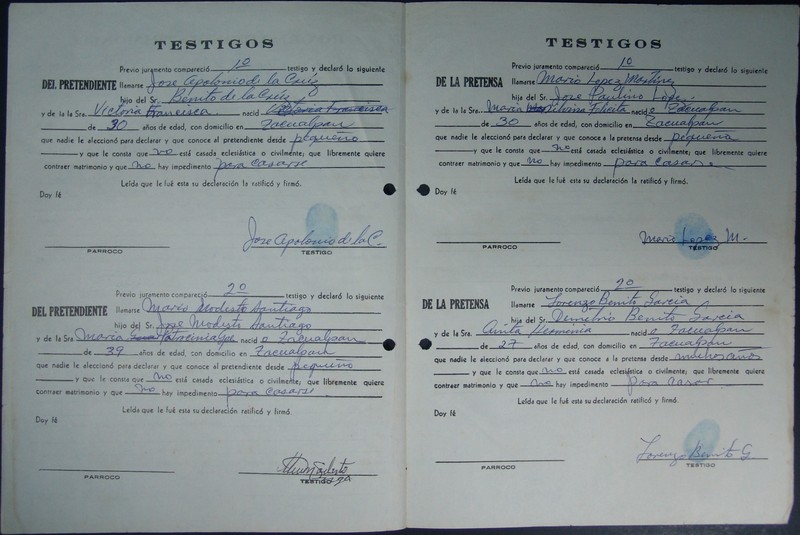 TESTIGOS
Previo juramento compareció 1o testigo y declaró lo siguiente
DEL PRETENDIENTE llamarse Jose Apolonio de la Cruz
hijo del Sr. Benito de la Cruz
y de la Sra. Victoria Francisca nació Victoria Francisca
de 30 años de edad, con domicilio en Zacualpan
que nadie le aleccionó para declarar y que conoce al pretendiente desde pequeño
y que le consta que no está casada eclesiástica o civilmente, que libremente quiere
contraer matrimonio y que no hay impedimento para casarse
Leída que le fué esta su declaración la ratificó y firmó.
Doy fé
Jose Apolonio de la C.
PARROCO TESTIGO
Previo juramento compareció 2o testigo y declaró lo siguiente
DEL PRETENDIENTE llamarse Mario Modesto Santiago
hijo del Sr. Jose Modesto Santiago
y de la Sra. Maria nació e Zacualpan
de 39 años de edad, con domicilio en Zacualpan
que nadie le aleccionó para declarar y que conoce al pretendiente desde pequeño
y que le consta que no está casada eclesiástica o civilmente, que libremente quiere
contraer matrimonio y que no hay impedimento para casarse
Leída que le fué esta su declaración la ratificó y firmó.
Doy fé
PARROCO TESTIGO
TESTIGOS
Previo juramento compareció 1o testigo y declaró lo siguiente
DE LA PRETENSA llamarse Mario Lopez Martinez
hijo del Sr. Jose Paulino Lopez
y de la Sra. Maria Felicita nació e Zacualpan
de 30 años de edad, con domicilio en Zacualpan
que nadie le aleccionó para declarar y que conoce a la pretensa desde pequeña
y que le consta que no está casada eclesiástica o civilmente, que libremente quiere
contraer matrimonio y que no hay impedimento para casarse
Leída que le fué esta su declaración la ratificó y firmó.
Doy fé
Mario Lopez M.
PARROCO TESTIGO
Previo juramento compareció 2o testigo y declaró lo siguiente
DE LA PRETENSA llamarse Lorenzo Benito Garcia
hijo del Sr. Demetrio Benito Garcia
y de la Sra. Anita nació e Zacualpan
de 27 años de edad, con domicilio en Zacualpan
que nadie le aleccionó para declarar y que conoce a la pretensa desde muchos años
y que le consta que no está casada eclesiástica o civilmente; que libremente quiere
contraer matrimonio y que no hay impedimento para casar
Leída que le fué esta su declaración la ratificó y firmó.
Doy fé
Lorenzo Benito G
PARROCO TESTIGO